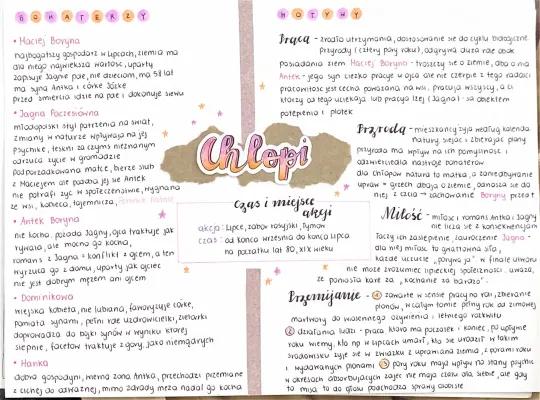 BOHATERZY
• Maciej Boryna
najbogatszy gospodarz w Lipcach, ziemia ma
dla niego największą wartość, uparty
zapisuje Jagnie pole, nie dzieciom, ma 58 lat
ma syna Antka i córkę Józkę
przed śmiercią idzie na pole i dokonuje siewu
• Jagna Paczesiówna
młodopolski styl patrzenia na świat,
zmiany w naturze wpływają na jej
psychikę, tęskni za czymś nieznanym
odrzuca życie w gromadzie
podporządkowana matce, bierze ślub
z Maciejem ale podoba jej się Antek
nie potrafi żyć w społeczeństwie, wygnana
ze wsi, kobieca, tajemnicza,
• Antek Boryna
nie kocha, pożąda Jagny, ojca traktuje jak
rywala, ale mocno go kocha,
romans z Jagną → konflikt z ojcem, a ten
wyrzuca go z domu, uparty jak ojciec
nie jest dobrym mężem ani ojcem
• Dominikowa
wiejska kobieta, nie lubiana, faworyzuje córkę,
pomiata synami, pełni rolę uzdrowicielki, zielarki
doprowadza do bójki synów w wyniku której
ślepnie, facetów traktuje z góry, jako niemądrych
• Hanka
dobra gospodyni, wierna żona Antka, przechodzi przemianę
z cichej do odważnej, mimo zdrady męża nadal go kocha
Chłopi
Czas i miejsce
akcji
akcja: Lipce, zabór rosyjski, Tymów
czas: od końca września do końca lipca
na początku lat 80, XIX wieku
MOTYWY
Praca - źródło utrzymania, dostosowanie się do cyklu biologicznego
Przyrody (cztery pory roku), odgrywa dużą rolę obok
posiadania ziemi Maciej Boryna - troszczy się o ziemię, dba o nią
Antek - jego syn ciężko pracuje w ojca ale nie czerpie z tego radości
pracowitość jest cechą poważaną na wsi, pracują wszyscy, a ci
którzy od tego uciekają lub pracują lżej (Jagna) są obiektem
potępienia i plotek
Przyroda - mieszkańcy żyją według kalendarza
natury, siejąc i zbierając plony
przyroda ma wpływ na ich pomyślność i
odzwierciedla nastroje bohaterów
dla chłopów natura to matka, a zaniedbywanie
upraw = grzech dbają o ziemię, odnoszą się do
niej z czcią → zachowanie Boryny przed †
Miłość - miłość i romans Antka i Jagny
nie liczą się z konsekwencjami
łączy ich zaślepienie, zauroczenie Jagna -
dla niej miłość to gwałtowna siła,
każde uczucie „porywa ją” w finale utworu
nie może zrozumieć lipeckiej społeczności, uważa,
że poniosła karę za „kochanie za bardzo”.
Przemijanie - ① zawarte w sensie pracy na roli, zbieranie
plonów, w całym tomie pełny rok do zimowej
martwoty do wiosennego ożywienia i letniego rozkwitu
② działania ludzi - praca która ma początek i koniec, po upływie
roku wiemy, kto np w Lipcach umarł, kto się urodził w takim
środowisku żyje się w związku z uprawianą ziemią, z porami roku
i wydawanymi plonami ③ pory roku mają wpływ na stany psychiczne
w okresach absorbujących zajęć nie mają czasu dla siebie, ale gdy
to mija to do głosu podchodzą sprawy osobiste